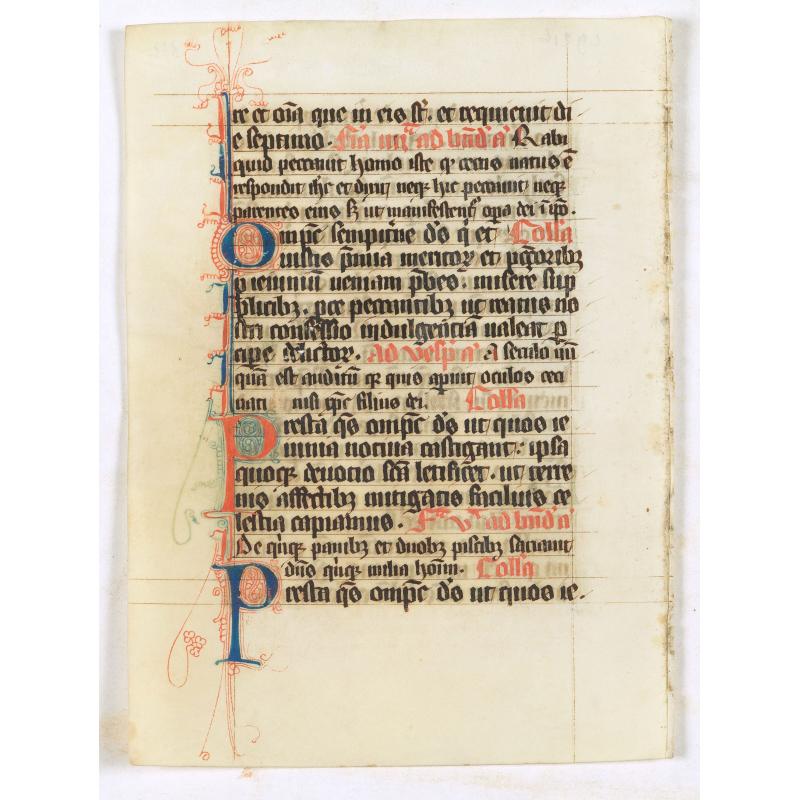 re et oīa que in eis sт̄. et requieuit di
e septimo. Fīa iiij^a ad bnd̄ a^a Rabi
quid peccauit homo iste qꝛ cecus natus ē
respondit ihc̄ et dixit neqꝫ hic peccauit neqꝫ
parentes eius sꝫ ut manifestent᷑ opa dei ī ip̄o.
Omp̄c sempitne ds̄ q̄ et Coll̄a
iustis p̄mia meritoꝝ et pctōribꝫ
p ieiunium ueniam p̄bes. miserere sup
plicibꝫ. pce peccantibꝫ ut reatus no
stri confessio indulgenciā ualeat p
cipe delictoꝝ. Ad vesp̄ a^a A seculo nū
quā est auditū qꝛ quis apuit oculos ceci
nati nisi xp̄c filius dei. Coll̄a
Presta qs̄ omp̄c ds̄ ut quos ie
iunia uotiua castigant. ipsa
quoqꝫ deuocio sc̄a letificet. ut terre
nis affectibꝫ mitigatis facilius ce
lestia capiamus. F^a v^a ad bnd̄ a^a
De qnqꝫ panibꝫ et duobꝫ piscibꝫ saciauit
dn̄s qnqꝫ milia hoīm. Coll̄a
Presta qs̄ omp̄c ds̄ ut quos ie.